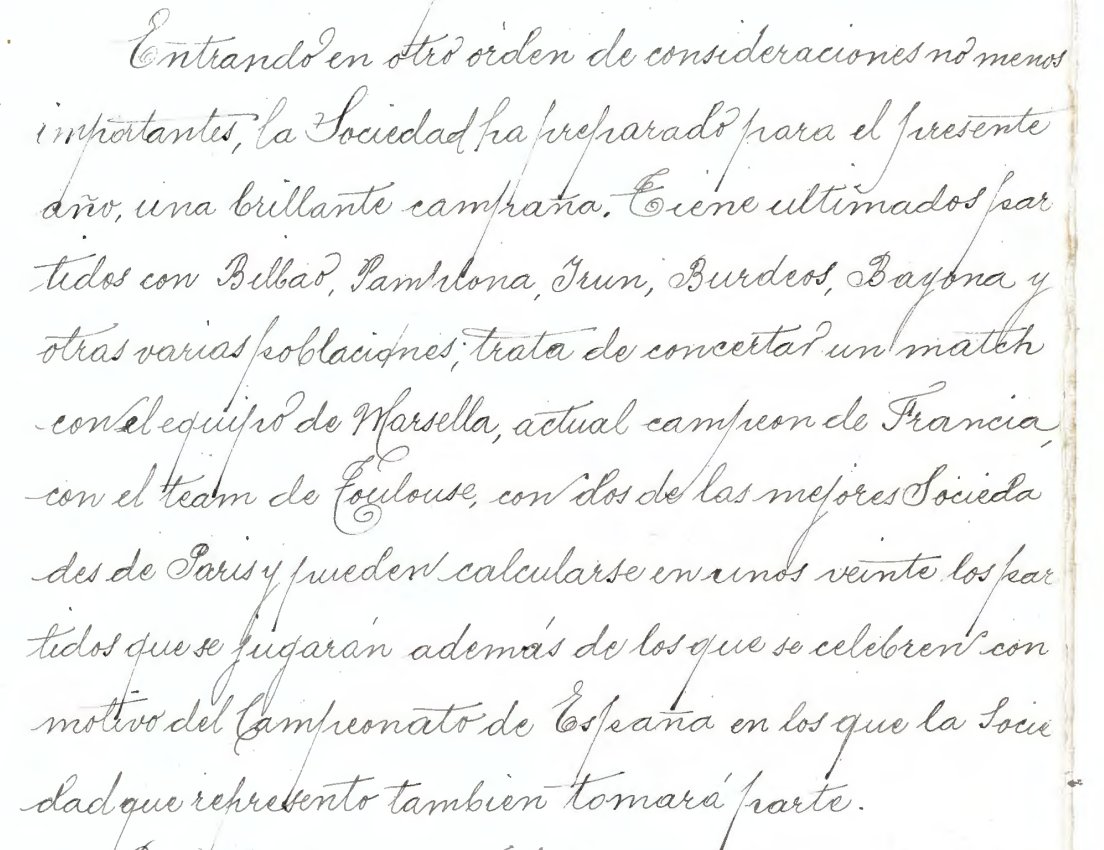 Entrando en otro orden de consideraciones no menos
importantes, la Sociedad ha preparado para el presente
año, una brillante campaña. Tiene ultimados par
tidos con Bilbao, Pamplona, Irun, Burdeos, Bayona y
otras varias poblaciones; trata de concertar un match
con el equipo de Marsella, actual campeon de Francia,
con el team de Toulouse, con dos de las mejores Socieda
des de Paris y pueden calcularse en unos veinte los par
tidos que se jugarán además de los que se celebren con
motivo del Campeonato de España en los que la Socie
dad que represento tambien tomará parte.